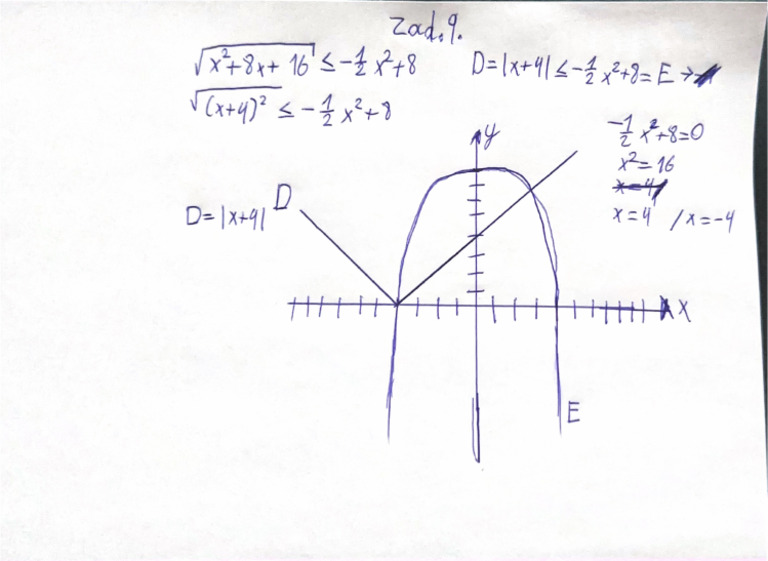 Zad. 9.
√(x²+8x+16) ≤ -1/2 x²+8   D=|x+4| ≤ -1/2 x²+8 = E →
√((x+4)²) ≤ -1/2 x²+8
-1/2 x²+8=0
x²=16
x=4
x=4 / x=-4
y
D
D=|x+4|
x
E